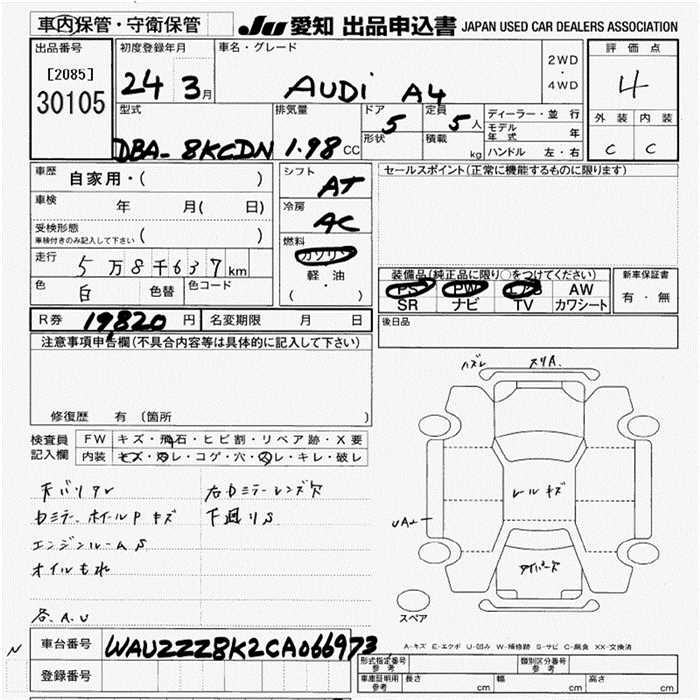 車内保管・守衛保管
JU 愛知 出品申込書 JAPAN USED CAR DEALERS ASSOCIATION
出品番号
[2085]
30105
初度登録年月
24 3月
車名・グレード
AUDi A4
2WD
・
4WD
評価点
4
外装 内装
C C
型式
DBA- 8KCDN
排気量
1.98 CC
ドア
5
形状
定員
5人
積載
kg
ディーラー・並行
モデル年式 年
ハンドル 左・右
車歴 自家用・( )
車検 年 月( 日)
受検形態
車検付きのみ記入して下さい ( )
走行 5万8千637km
色 白 色替 色コード
シフト
AT
冷房
AC
燃料
ガソリン
軽・油
( ・ )
セールスポイント(正常に機能するものに限ります)
装備品(純正品に限り○をつけてください)
PS PW エアB AW
SR ナビ TV カワシート
新車保証書
有・無
R券 19,820 円 名変期限 月 日
後日品
注意事項申告欄(不具合内容等は具体的に記入して下さい)
修復歴 有 (箇所 )
検査員記入欄
FW キズ・飛石・ヒビ割・リペア跡・X要
内装 キズ・汚レ・コゲ・穴・スレ・キレ・破レ
天バリアレ 右ロミラーレンズ欠
ロミラー、ホイールP キズ 下廻りS
エンジンルームS
オイルもれ
各.A.U
ハズレ スリA.
レールキズ
UA
スペア
A-キズ E-エクボ U-凹み W-補修跡 S-サビ C-腐食 XX-交換済
N
車台番号 WAUZZZ8K2CA066973
登録番号
形式指定番号
参考
類別区分番号
参考
車庫証明用
参考
長さ cm 幅 cm 高さ cm